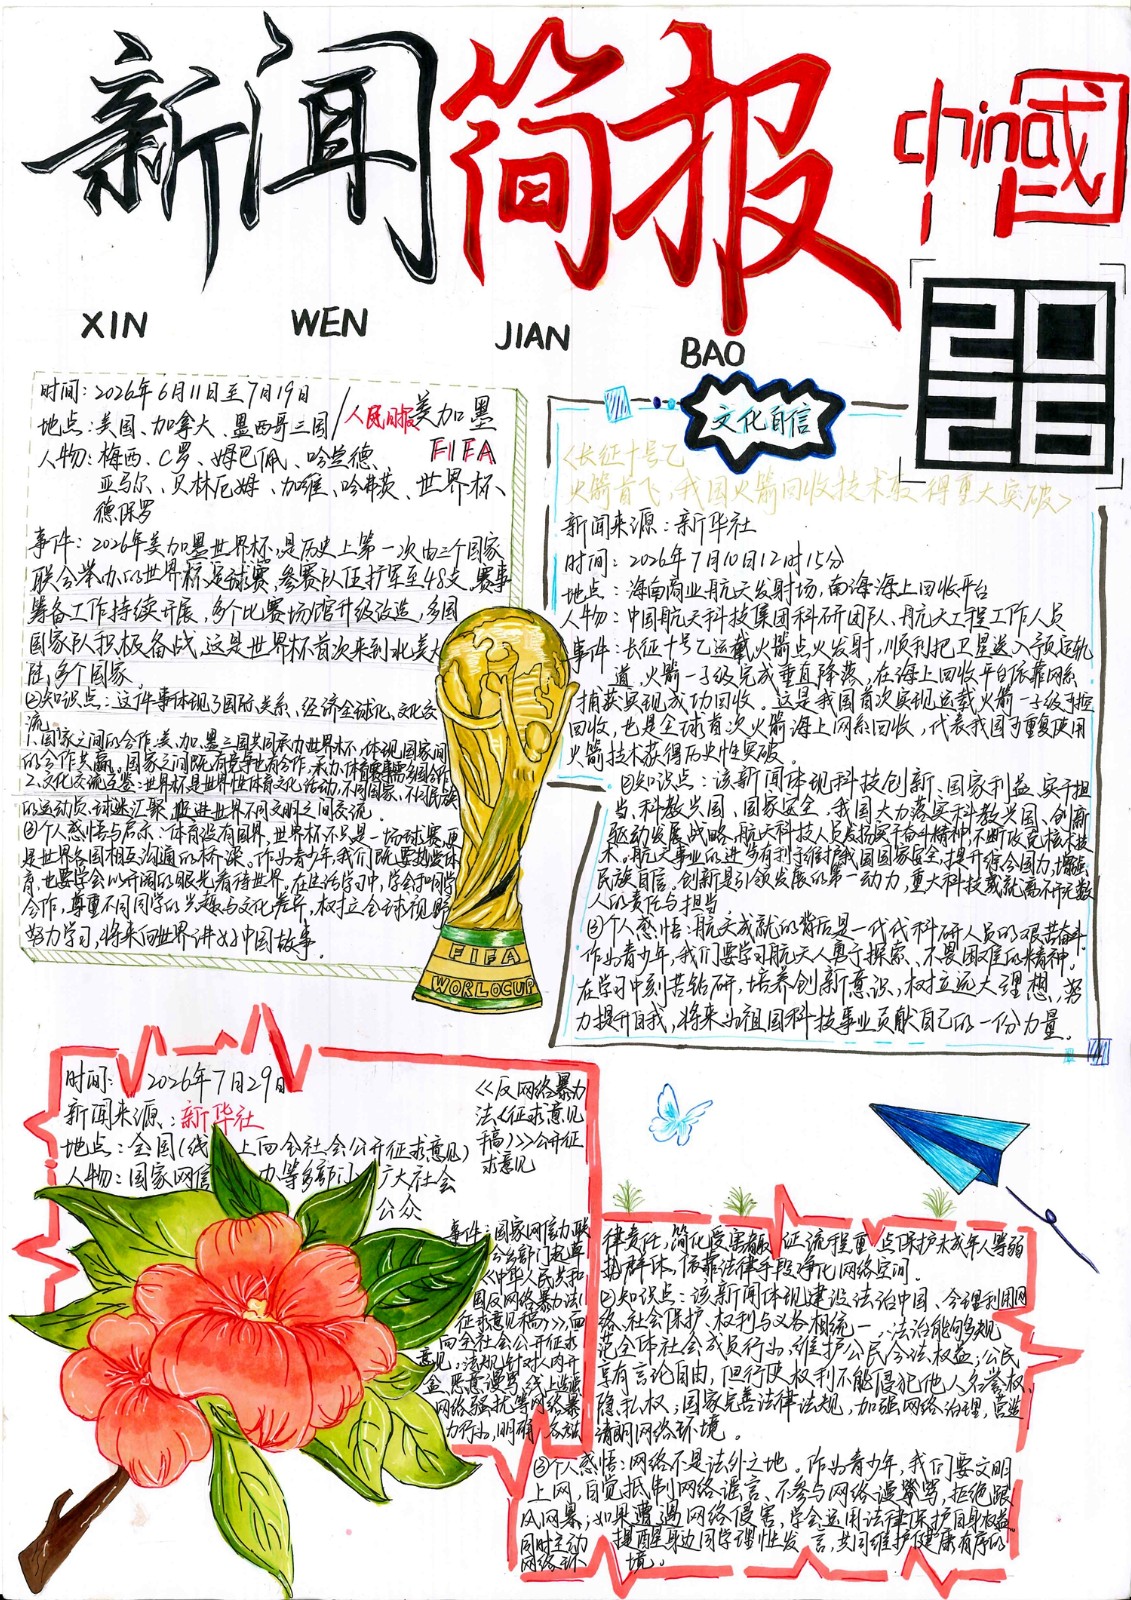 新闻简报
china国
2026
XIN WEN JIAN BAO
时间：2026年6月11日至7月19日
地点：美国、加拿大、墨西哥三国
人民日报
美加墨
FIFA
世界杯
人物：梅西、C罗、姆巴佩、哈兰德、
亚马尔、贝林厄姆、加维、哈弗茨、
德保罗
事件：2026年美加墨世界杯，是历史上第一次由三个国家
联合举办的世界杯足球赛，参赛队伍扩军至48支，赛事
筹备工作持续开展，多个比赛场馆升级改造，多国
国家队积极备战，这是世界杯首次来到北美大
陆，多个国家
②知识点：这件事体现了国际关系、经济全球化、文化交
流
1、国家之间的合作，美、加、墨三国共同承办世界杯，体现国家间
的合作共赢。国家之间既有竞争也有合作，承办体育赛事需多国合作
2、文化交流互鉴：世界杯是世界性体育文化活动，不同国家、不同民族
的运动员、球迷汇聚，促进世界不同文明之间交流。
③个人感悟与启示：体育没有国界，世界杯不只是一场球赛，更
是世界各国相互沟通的桥梁。作为青少年，我们既要热爱体
育，也要学会以开阔的眼光看待世界。在生活学习中，学会和同学
合作，尊重不同同学的兴趣与文化差异，树立全球视野
努力学习，将来向世界讲好中国故事。
FIFA
WORLDCUP
文化自信
<长征十号乙
火箭首飞，我国火箭回收技术取得重大突破>
新闻来源：新华社
时间：2026年7月10日12时15分
地点：海南商业航天发射场，南海海上回收平台
人物：中国航天科技集团科研团队、航天工程工作人员
事件：长征十号乙运载火箭点火发射，顺利把卫星送入预定轨
道，火箭一子级完成垂直降落，在海上回收平台依靠网系
捕获实现成功回收。这是我国首次实现运载火箭一子级可控
回收，也是全球首次火箭海上网系回收，代表我国可重复使用
火箭技术获得历史性突破。
②知识点：该新闻体现科技创新、国家利益、实干担
当，科教兴国、国家安全，我国大力落实科教兴国、创新
驱动发展战略，航天科技人员发扬实干奋斗精神，不断攻克核心技
术。航天事业的进步有利于维护我国国家安全，提升综合国力，增强
民族自信。创新是引领发展的第一动力，重大科技成就离不开无数
人的责任与担当
③个人感悟：航天成就的背后是一代代科研人员的艰苦奋斗
作为青少年，我们要学习航天人勇于探索、不畏困难的精神，
在学习中刻苦钻研，培养创新意识，树立远大理想，努
力提升自我，将来为祖国科技事业贡献自己的一份力量。
时间：2026年7月29日
新闻来源：新华社
地点：全国（线上向全社会公开征求意见）
人物：国家网信办等多部门、广大社会
公众
<<反网络暴力
法<征求意见
稿>>>公开征
求意见
事件：国家网信办联
合公部门起草
<<中华人民共和
国反网络暴力法(
征求意见稿)>>,面
向全社会公开征求
意见，法规针对人肉开
盒、恶意谩骂、线上造谣
网络骚扰等网络暴
力行为，明确各方法
律责任，简化受害者取证流程重点保护未成年人等弱
势群体，依靠法律手段净化网络空间。
②知识点：该新闻体现建设法治中国、合理利用网
络、社会保护、权利与义务相统一、法治能够规
范全体社会成员行为，维护公民合法权益；公民
享有言论自由，但行使权利不能侵犯他人名誉权、
隐私权；国家完善法律法规，加强网络治理，营造
清朗网络环境。
③个人感悟：网络不是法外之地。作为青少年，我们要文明
上网，自觉抵制网络谣言、不参与网络谩骂，拒绝跟
风网暴，如果遭遇网络侵害，学会运用法律保护自身权益
同时主动提醒身边同学理性发言，共同维护健康有序的
网络环境。